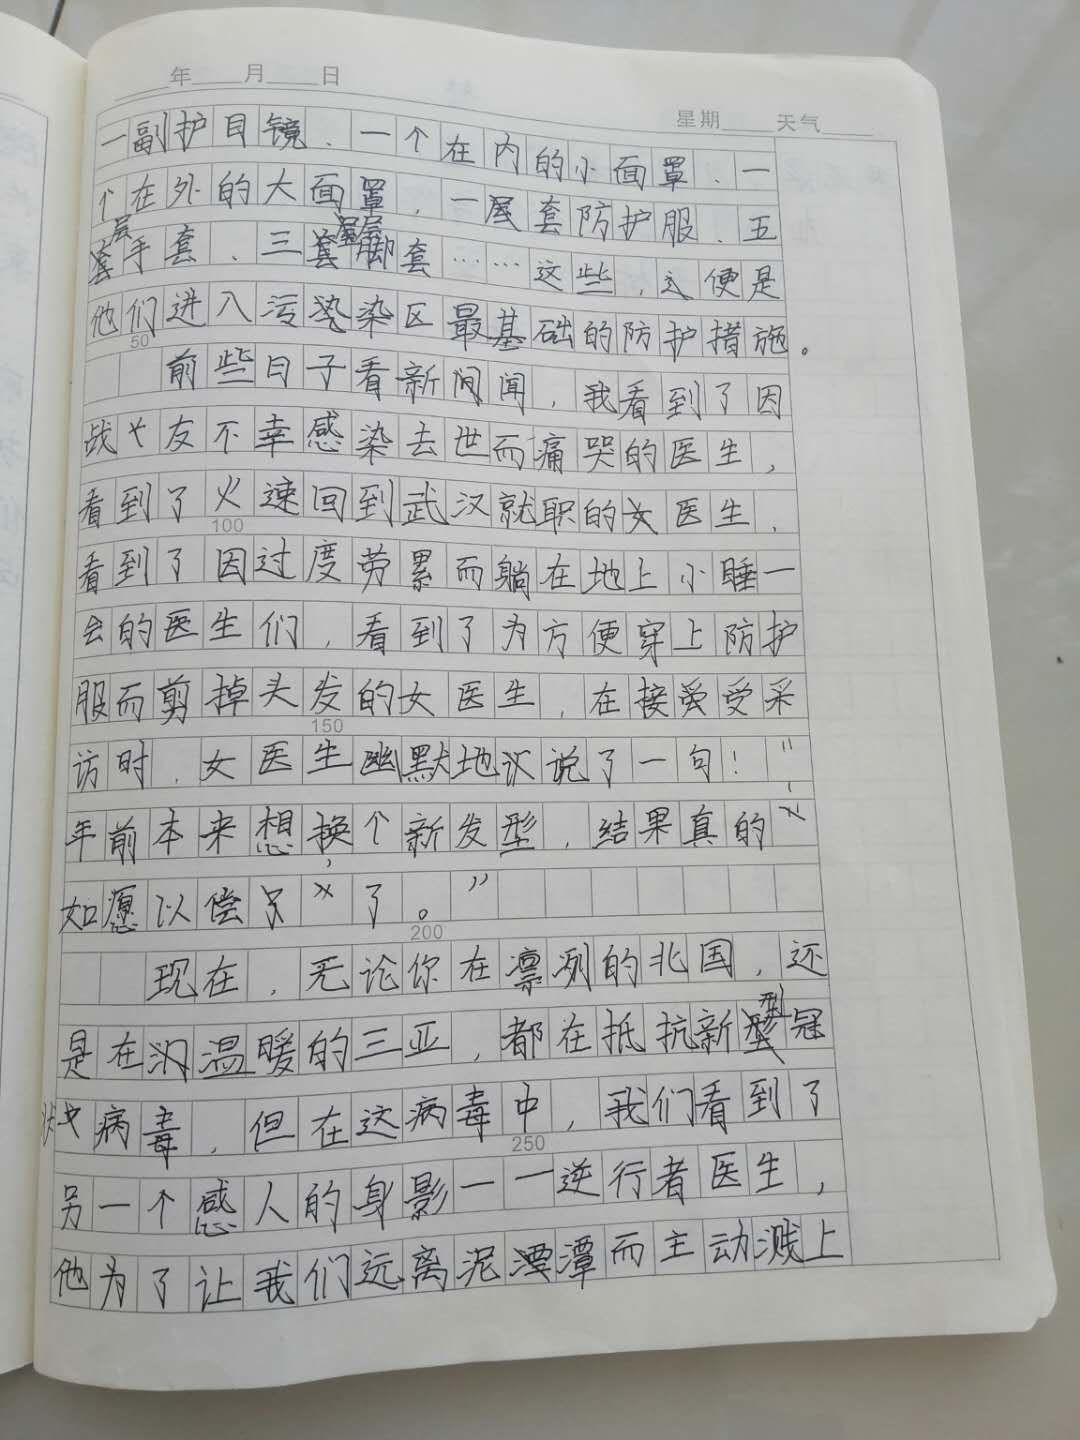 年 月 日
星期 天气
一副护目镜、一个在内的小面罩、一
个在外的大面罩、一层套防护服、五
层手套、三层脚套……这些,这便是
他们进入污染区最基础的防护措施。
50
前些日子看新闻,我看到了因
战友不幸感染去世而痛哭的医生,
看到了火速回到武汉就职的女医生,
100
看到了因过度劳累而躺在地上小睡一
会的医生们,看到了为方便穿上防护
服而剪掉头发的女医生,在接受采
150
访时,女医生幽默地说了一句:“
年前本来想换个新发型,结果真的
如愿以偿了。”
200
现在,无论你在凛冽的北国,还
是在温暖的三亚,都在抵抗新型冠
状病毒,但在这病毒中,我们看到了
250
另一个感人的身影——逆行者医生,
他为了让我们远离泥潭而主动溅上